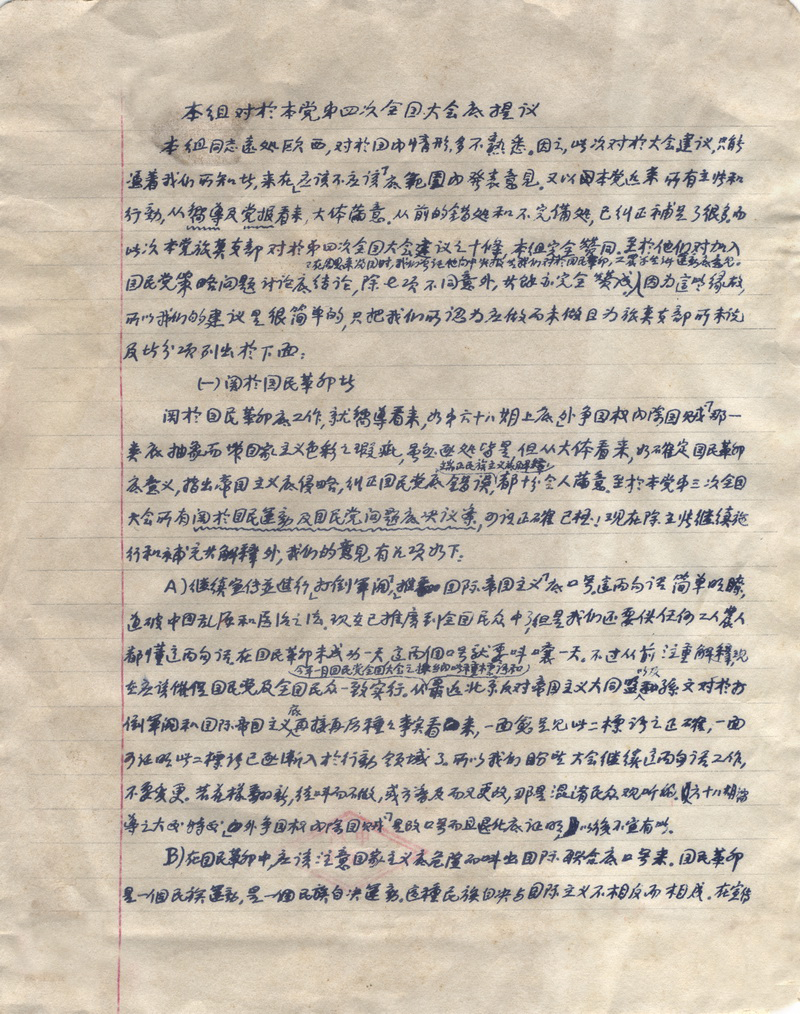 本组对於本党第四次全国大会底提议
本组同志远处欧西,对於国内情形,多不熟悉。因之,此次对於大会建议,只能
逼着我们所知些,来在「应该不应该」底范围内发表意见。又以因本党近来所有主张和
行动,从嚮导及党报看来,大体满意。从前的错处和不完备处,已纠正补足了很多。而
此次本党旅莫支部对於第四次全国大会建议之十条,本组完全赞同。至於他们对加入
国民党策略问题讨论底结论,除七项不同意外,其余亦完全赞成,因为这些缘故,
所以我们的建议是很简单的,只把我们所认为应做而未做且为旅莫支部所未说
及些分项列出於下面:
(一)関於国民革命些
関於国民革命底工作,就嚮导看来,如第六十八期上底「外争国权内除国贼」那一
类底抽象而带国家主义色彩之瑕疵,虽亦处处皆是,但从大体看来,如确定国民革命
底意义,指出帝国主义底侵略,纠正国民党底错误,都十分令人满意。至於本党第三次全国
大会所有関於国民运动及国民党问题底决议案,可说正确已极!现在除主张继续施
行和补充其解释外,我们的意见有几项如下:
A)继续宣传並进行「打倒军阀,推翻国际帝国主义」底口号。这两句话简单明瞭,
道破中国乱原和医治之法。现在已推广到全国民众中了,但是我们还要使任何工人农人
都懂这两句话。在国民革命未成功一天,这两个口号就要呼嚷一天。不过从前注重解释,现
今年一月国民党全国大会之标出此种标语和
在应该催促国民党及全国民众一致实行。从最近北京反对帝国主义大同盟和孙文对於打
倒军阀和国际帝国主义底再接再厉种々事实看来,一面愈足见此二标语之正确,一面
可证明此二标语已逐渐入於行动领域了。所以我们盼望大会继续这两句话工作,
不要变更。若花样翻新,徒呼而不做,或方普及而又更改,那是混淆民众观听的。六十八期嚮
导之大书特书「外争国权内除国贼」是改口号而且退化底证明,以后不宜有此。
B)在国民革命中,应该注意国家主义底危险而叫出国际联合底口号来。国民革命
是一个民族运动,是一个民族自决运动。这种民族自决与国际主义不相反而相成。在宣传